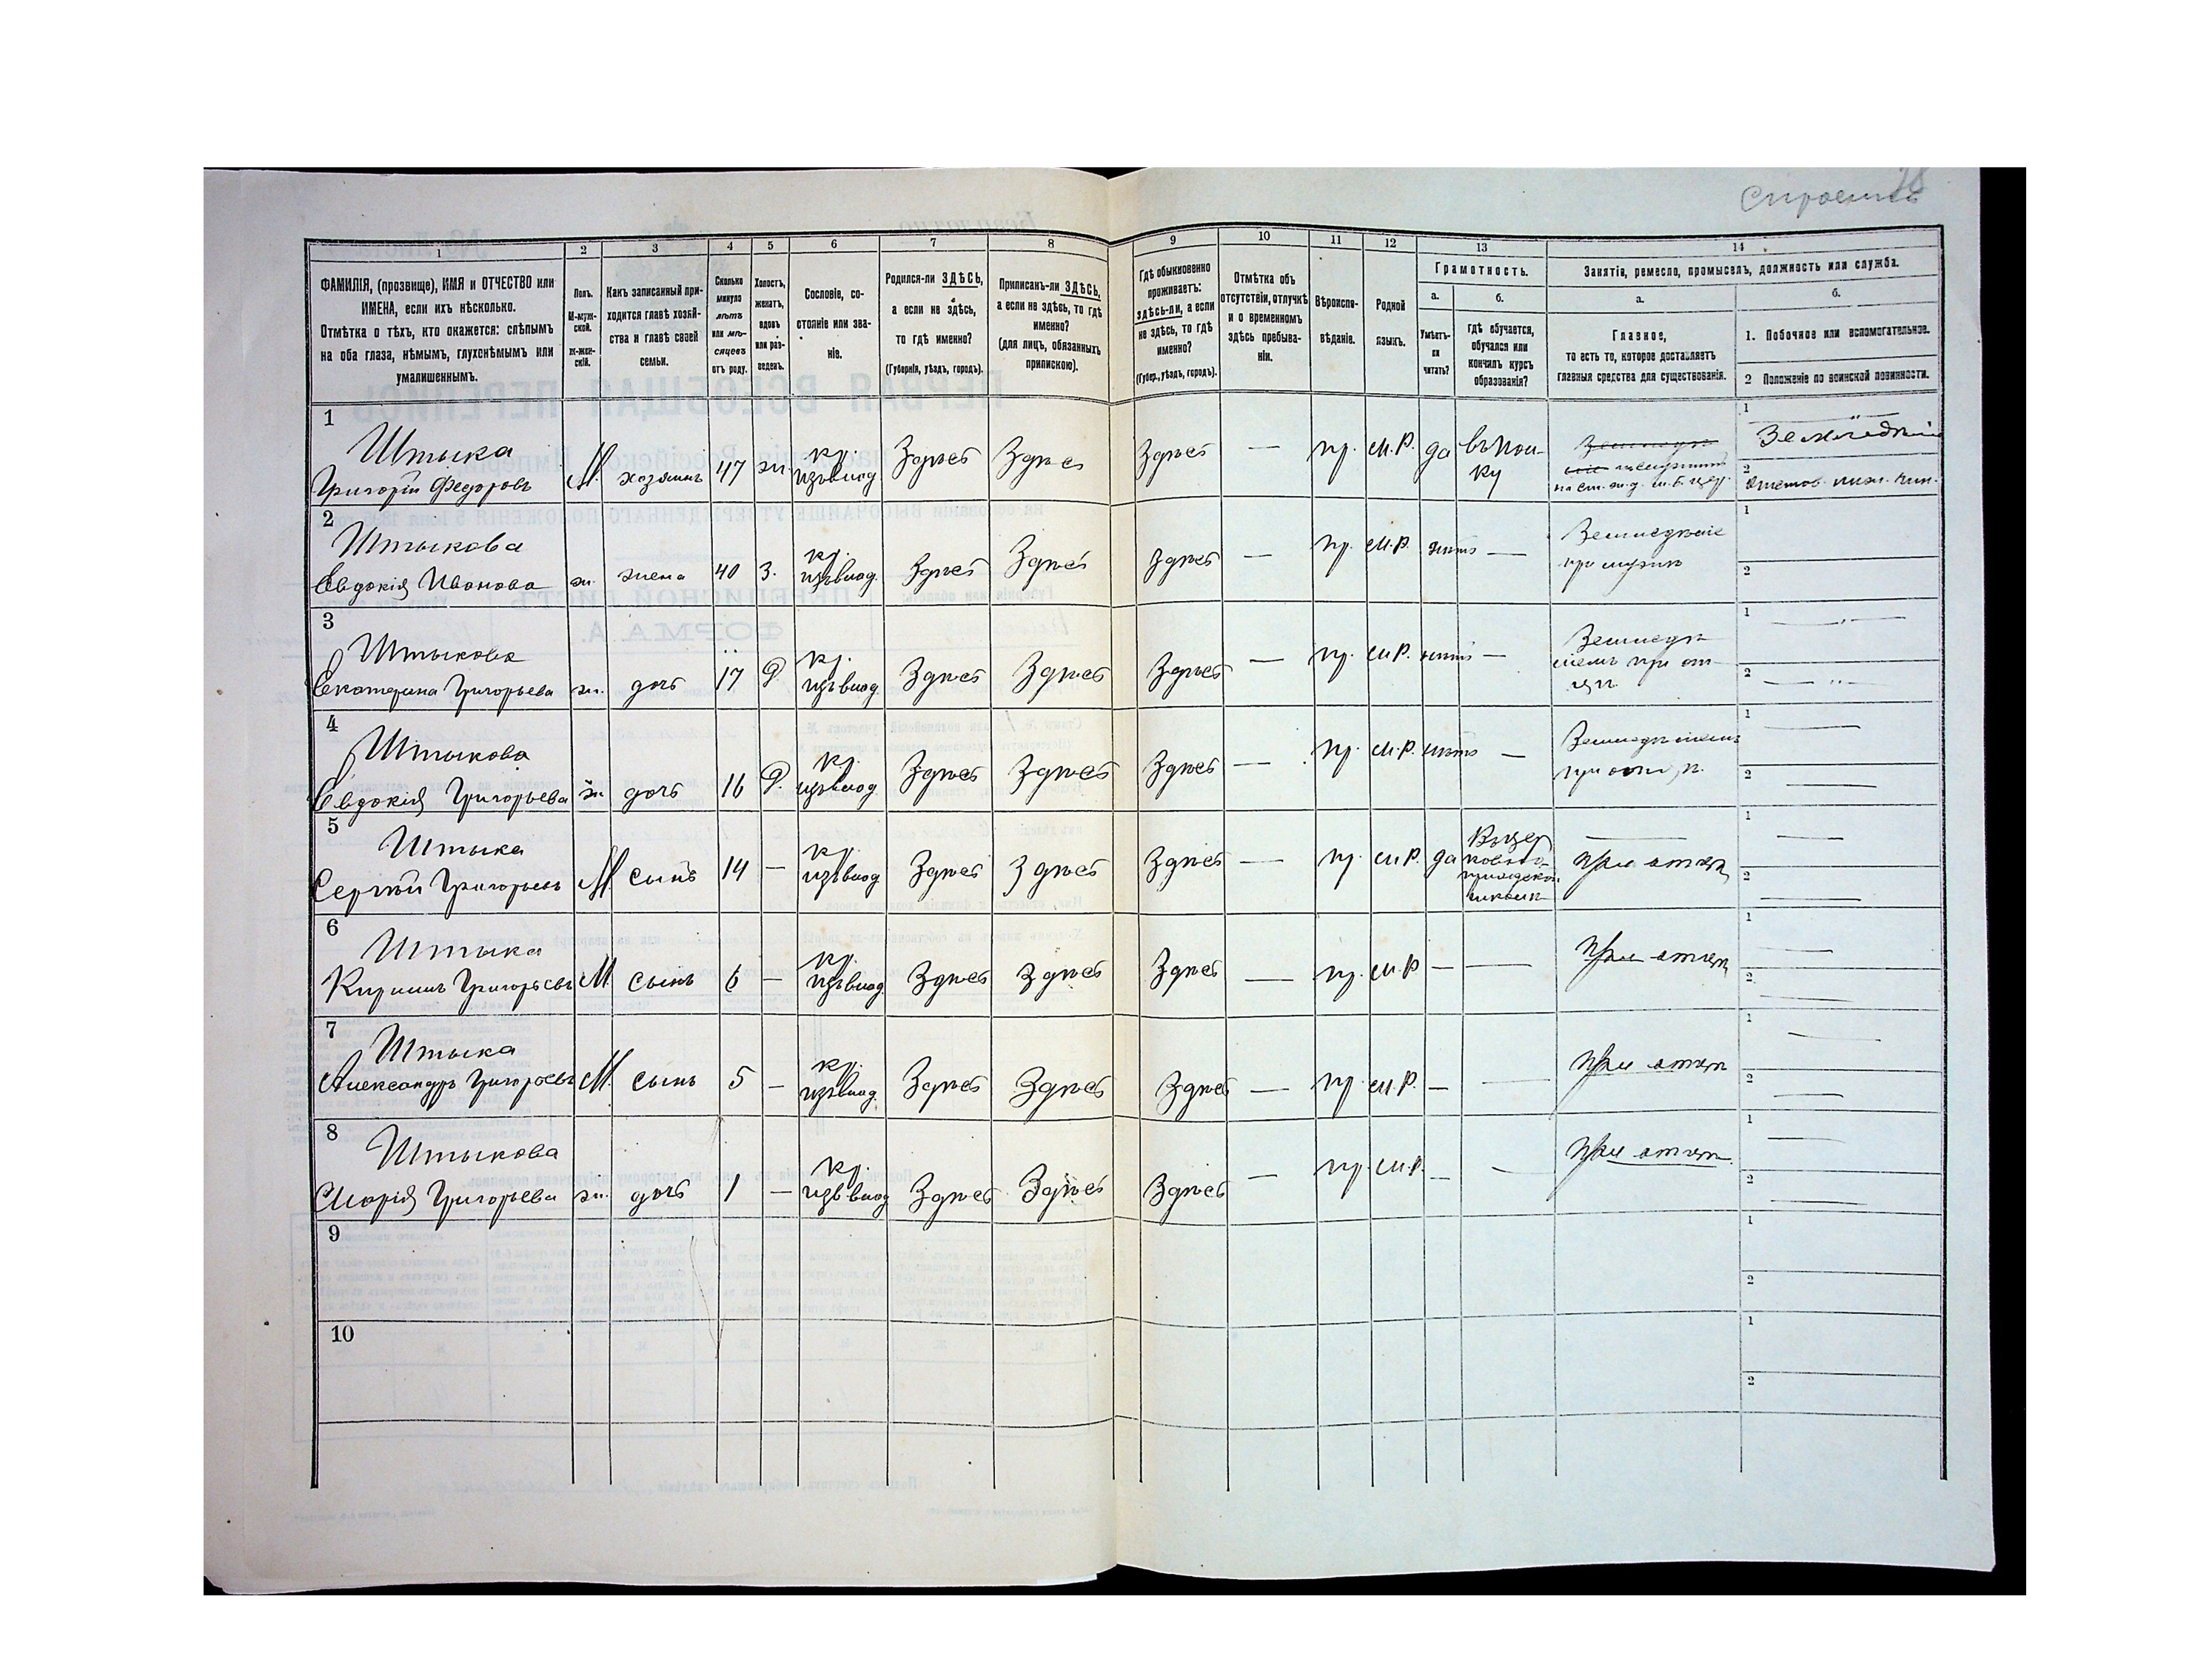 1 2 3 4 5 6 7 8 9 10 11 12 13 14
ФАМИЛІЯ, (прозвище), ИМЯ и ОТЧЕСТВО или
ИМЕНА, если ихъ нѣсколько.
Отмѣтка о тѣхъ, кто окажется: слѣпымъ
на оба глаза, нѣмымъ, глухонѣмымъ или
умалишеннымъ.
Полъ.
М-муж-
ской.
ж-жен-
скій.
Какъ записанный при-
ходится главѣ хозяй-
ства и главѣ своей
семьи.
Сколько
минуло
лѣтъ
или мѣ-
сяцевъ
отъ роду.
Холостъ,
женатъ,
вдовъ
или раз-
веденъ.
Сословіе, со-
стояніе или зва-
ніе.
Родился-ли ЗДѢСЬ,
а если не здѣсь,
то гдѣ именно?
(Губернія, уѣздъ, городъ).
Приписанъ-ли ЗДѢСЬ,
а если не здѣсь, то гдѣ
именно?
(для лицъ, обязанныхъ
припискою).
Гдѣ обыкновенно
проживаетъ:
здѣсь-ли, а если
не здѣсь, то гдѣ
именно?
(Губер., уѣздъ, городъ).
Отмѣтка объ
отсутствіи, отлучкѣ
и о временномъ
здѣсь пребыва-
ніи.
Вѣроиспо-
вѣданіе.
Родной
языкъ.
Грамотность.
а.
Умѣетъ-
ли
читать?
б.
гдѣ обучается,
обучался или
кончилъ курсъ
образованія?
Занятіе, ремесло, промыселъ, должность или служба.
а.
Главное,
то есть то, которое доставляетъ
главныя средства для существованія.
б.
1. Побочное или вспомогательное.
2 Положеніе по воинской повинности.
1
Штыка
Григорій Федоровъ М. хозяинъ 47 ж. кр.
изъ влад. Здѣсь Здѣсь Здѣсь — пр. М.Р. да въ пол-
ку
1 Земледѣліе
2
2
Штыкова
Евдокія Иванова ж. жена 40 З. кр.
изъ влад. Здѣсь Здѣсь Здѣсь — пр. М.Р. нѣтъ — Земледѣліе
при мужѣ
1
2
3
Штыкова
Екатерина Григорьева ж. дочь 17 Д кр.
изъ влад. Здѣсь Здѣсь Здѣсь — пр. М.Р. нѣтъ — Земледѣ
ліемъ при от
цѣ
1
2
4
Штыкова
Евдокія Григорьева ж дочь 16 Д. кр.
изъ влад. Здѣсь Здѣсь Здѣсь — пр. М.Р. нѣтъ — Земледѣліемъ
1 —
2 —
5
Штыка
Сергѣй Григорьевъ М. сынъ 14 — кр.
изъ влад Здѣсь Здѣсь Здѣсь — пр. М.Р. да Въ цер
ковно-
приходской
школѣ
При отцѣ
1 —
2 —
6
Штыка
Кирилъ Григорьевъ М сынъ 6 — кр.
изъ влад. Здѣсь Здѣсь Здѣсь — пр. М.Р — — При отцѣ
1 —
2 —
7
Штыка
Александръ Григорьевъ М. сынъ 5 — кр.
изъ влад. Здѣсь Здѣсь Здѣсь — пр. М.Р. — — При отцѣ
1 —
2 —
8
Штыкова
Марія Григорьева ж. дочь 1 — кр.
изъ влад Здѣсь Здѣсь Здѣсь — пр. М.Р. — — При отцѣ.
1 —
2 —
9
1
2
10
1
2